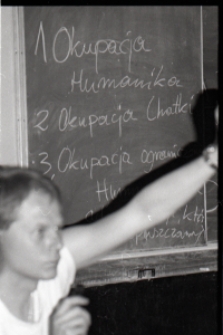 1 Okupacja
Humanika
2, Okupacja Chatki
3, Okupacja ogranic
Hu
któ
puszczamy